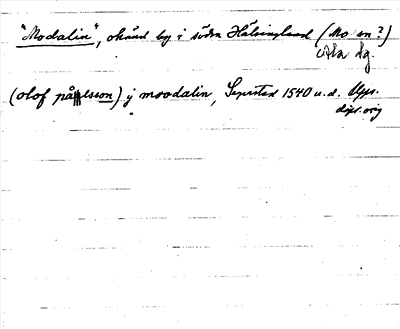 "Modalin", okänd by i södra Hälsingland (Mo sn?)
Ala sg.
(olof påwelsson) j moodalin, Segersted 1540 u.d. Upps.
dipl. orig